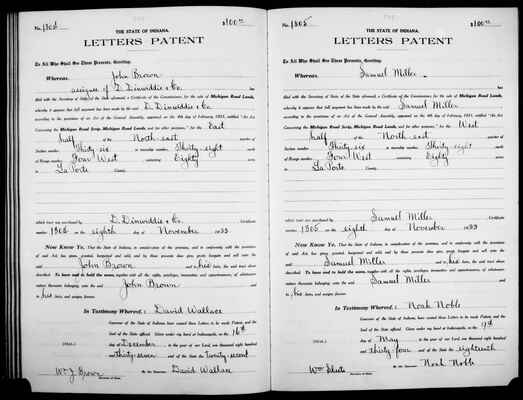 No. 1804 $100.00
THE STATE OF INDIANA.
LETTERS PATENT
To All Who Shall See These Presents, Greeting:
Whereas, John Brown
assignee of D. Dinwiddie & Co.
filed with the Secretary of State of the State aforesaid, a Certificate of the Commissioners, for the sale of Michigan Road Lands,
whereby it appears that full payment has been made by the said D. Dinwiddie & Co.
according to the provisions of an Act of the General Assembly, approved on the 4th day of February, 1831, entitled "An Act
Concerning the Michigan Road Scrip, Michigan Road Lands, and for other purposes," for the East
half of the North east quarter of
Section number Thirty six in Township number Thirty eight north
of Range number Four West, containing Eighty acres
in La Porte County
which tract was purchased by D. Dinwiddie & Co. Certificate
number 1804 on the eighth day of November 1833
Now Know Ye, That the State of Indiana, in consideration of the premises, and in conformity with the provisions
of said Act has given, granted, bargained and sold by these presents does give, grant, bargain and sell unto the
said John Brown and to his heirs, the said tract above
described. To have and to hold the same, together with all the rights, privileges, immunities and appurtenances, of whatsoever
nature thereunto belonging, unto the said John Brown and
to his heirs, and assigns forever.
In Testimony Whereof, I David Wallace
Governor of the State of Indiana, have caused these Letters to be made Patent, and the
Seal of the State affixed. Given under my hand at Indianapolis, on the 16th
(SEAL.) day of December in the year of our Lord, one thousand eight hundred
and thirty-seven and of the State the twenty-second
By the Governor: David Wallace
Wm J Brown
Secretary of State.
No. 1805 $100.00
THE STATE OF INDIANA.
LETTERS PATENT
To All Who Shall See These Presents, Greeting:
Whereas, Samuel Miller
filed with the Secretary of State of the State aforesaid, a Certificate of the Commissioners, for the sale of Michigan Road Lands,
whereby it appears that full payment has been made by the said Samuel Miller
according to the provisions of an Act of the General Assembly, approved on the 4th day of February, 1831, entitled "An Act
Concerning the Michigan Road Scrip, Michigan Road Lands, and for other purposes," for the West
half of the North east quarter of
Section number Thirty six in Township number Thirty eight north
of Range number Four West, containing Eighty acres
in La Porte County
which tract was purchased by Samuel Miller Certificate
number 1805 on the eighth day of November 1833
Now Know Ye, That the State of Indiana, in consideration of the premises, and in conformity with the provisions
of said Act has given, granted, bargained and sold by these presents does give, grant, bargain and sell unto the
said Samuel Miller and to his heirs, the said tract above
described. To have and to hold the same, together with all the rights, privileges, immunities and appurtenances, of whatsoever
nature thereunto belonging, unto the said Samuel Miller and
to his heirs, and assigns forever.
In Testimony Whereof, I Noah Noble
Governor of the State of Indiana, have caused these Letters to be made Patent, and the
Seal of the State affixed. Given under my hand at Indianapolis, on the 19th
(SEAL.) day of May in the year of our Lord, one thousand eight hundred
and thirty-four and of the State the eighteenth
By the Governor: Noah Noble
Wm Sheets
Secretary of State.